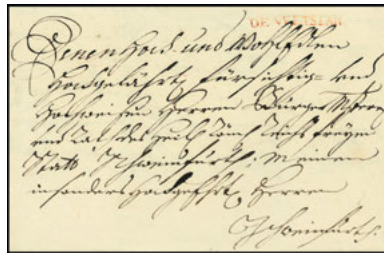 DE WETSLAR
Denen Hoch: und Wohl Edlen
Hochgelährt, fürsichtig= und
Hochweisen Herren Bürger Mstern
und Rath des Heil: Röm: Reichs freyen
Statt Schweinfurth. Meinen
insonders Hochge Herren
Schweinfurth.